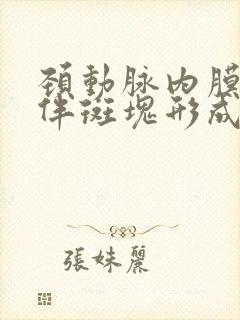 頸動脉内膜
伴斑塊形成
張妹麗